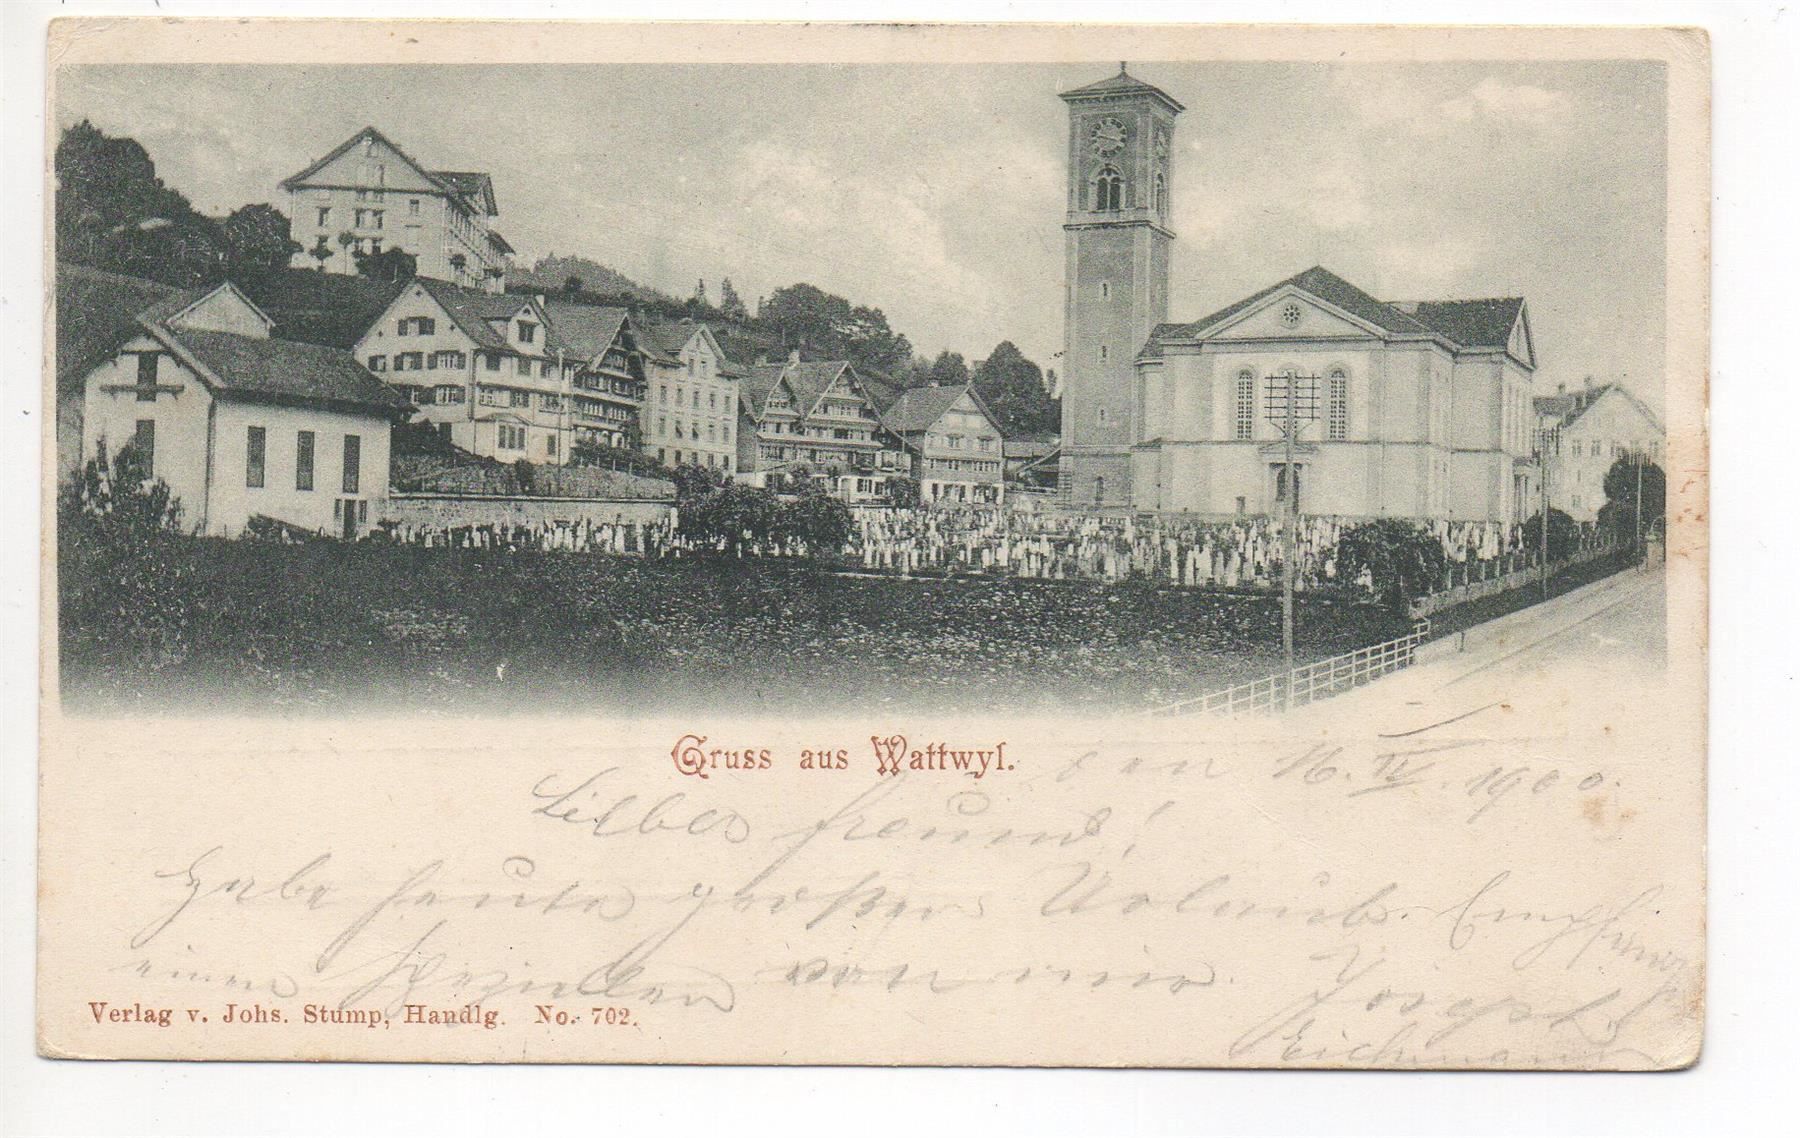 Gruss aus Wattwyl.
den 16. IV. 1900.
Lieber Freund!
Habe heute großen Urlaub. Empfange
einen von mir. Joseph
Eichmann
Verlag v. Johs. Stump, Handlg. No. 702.